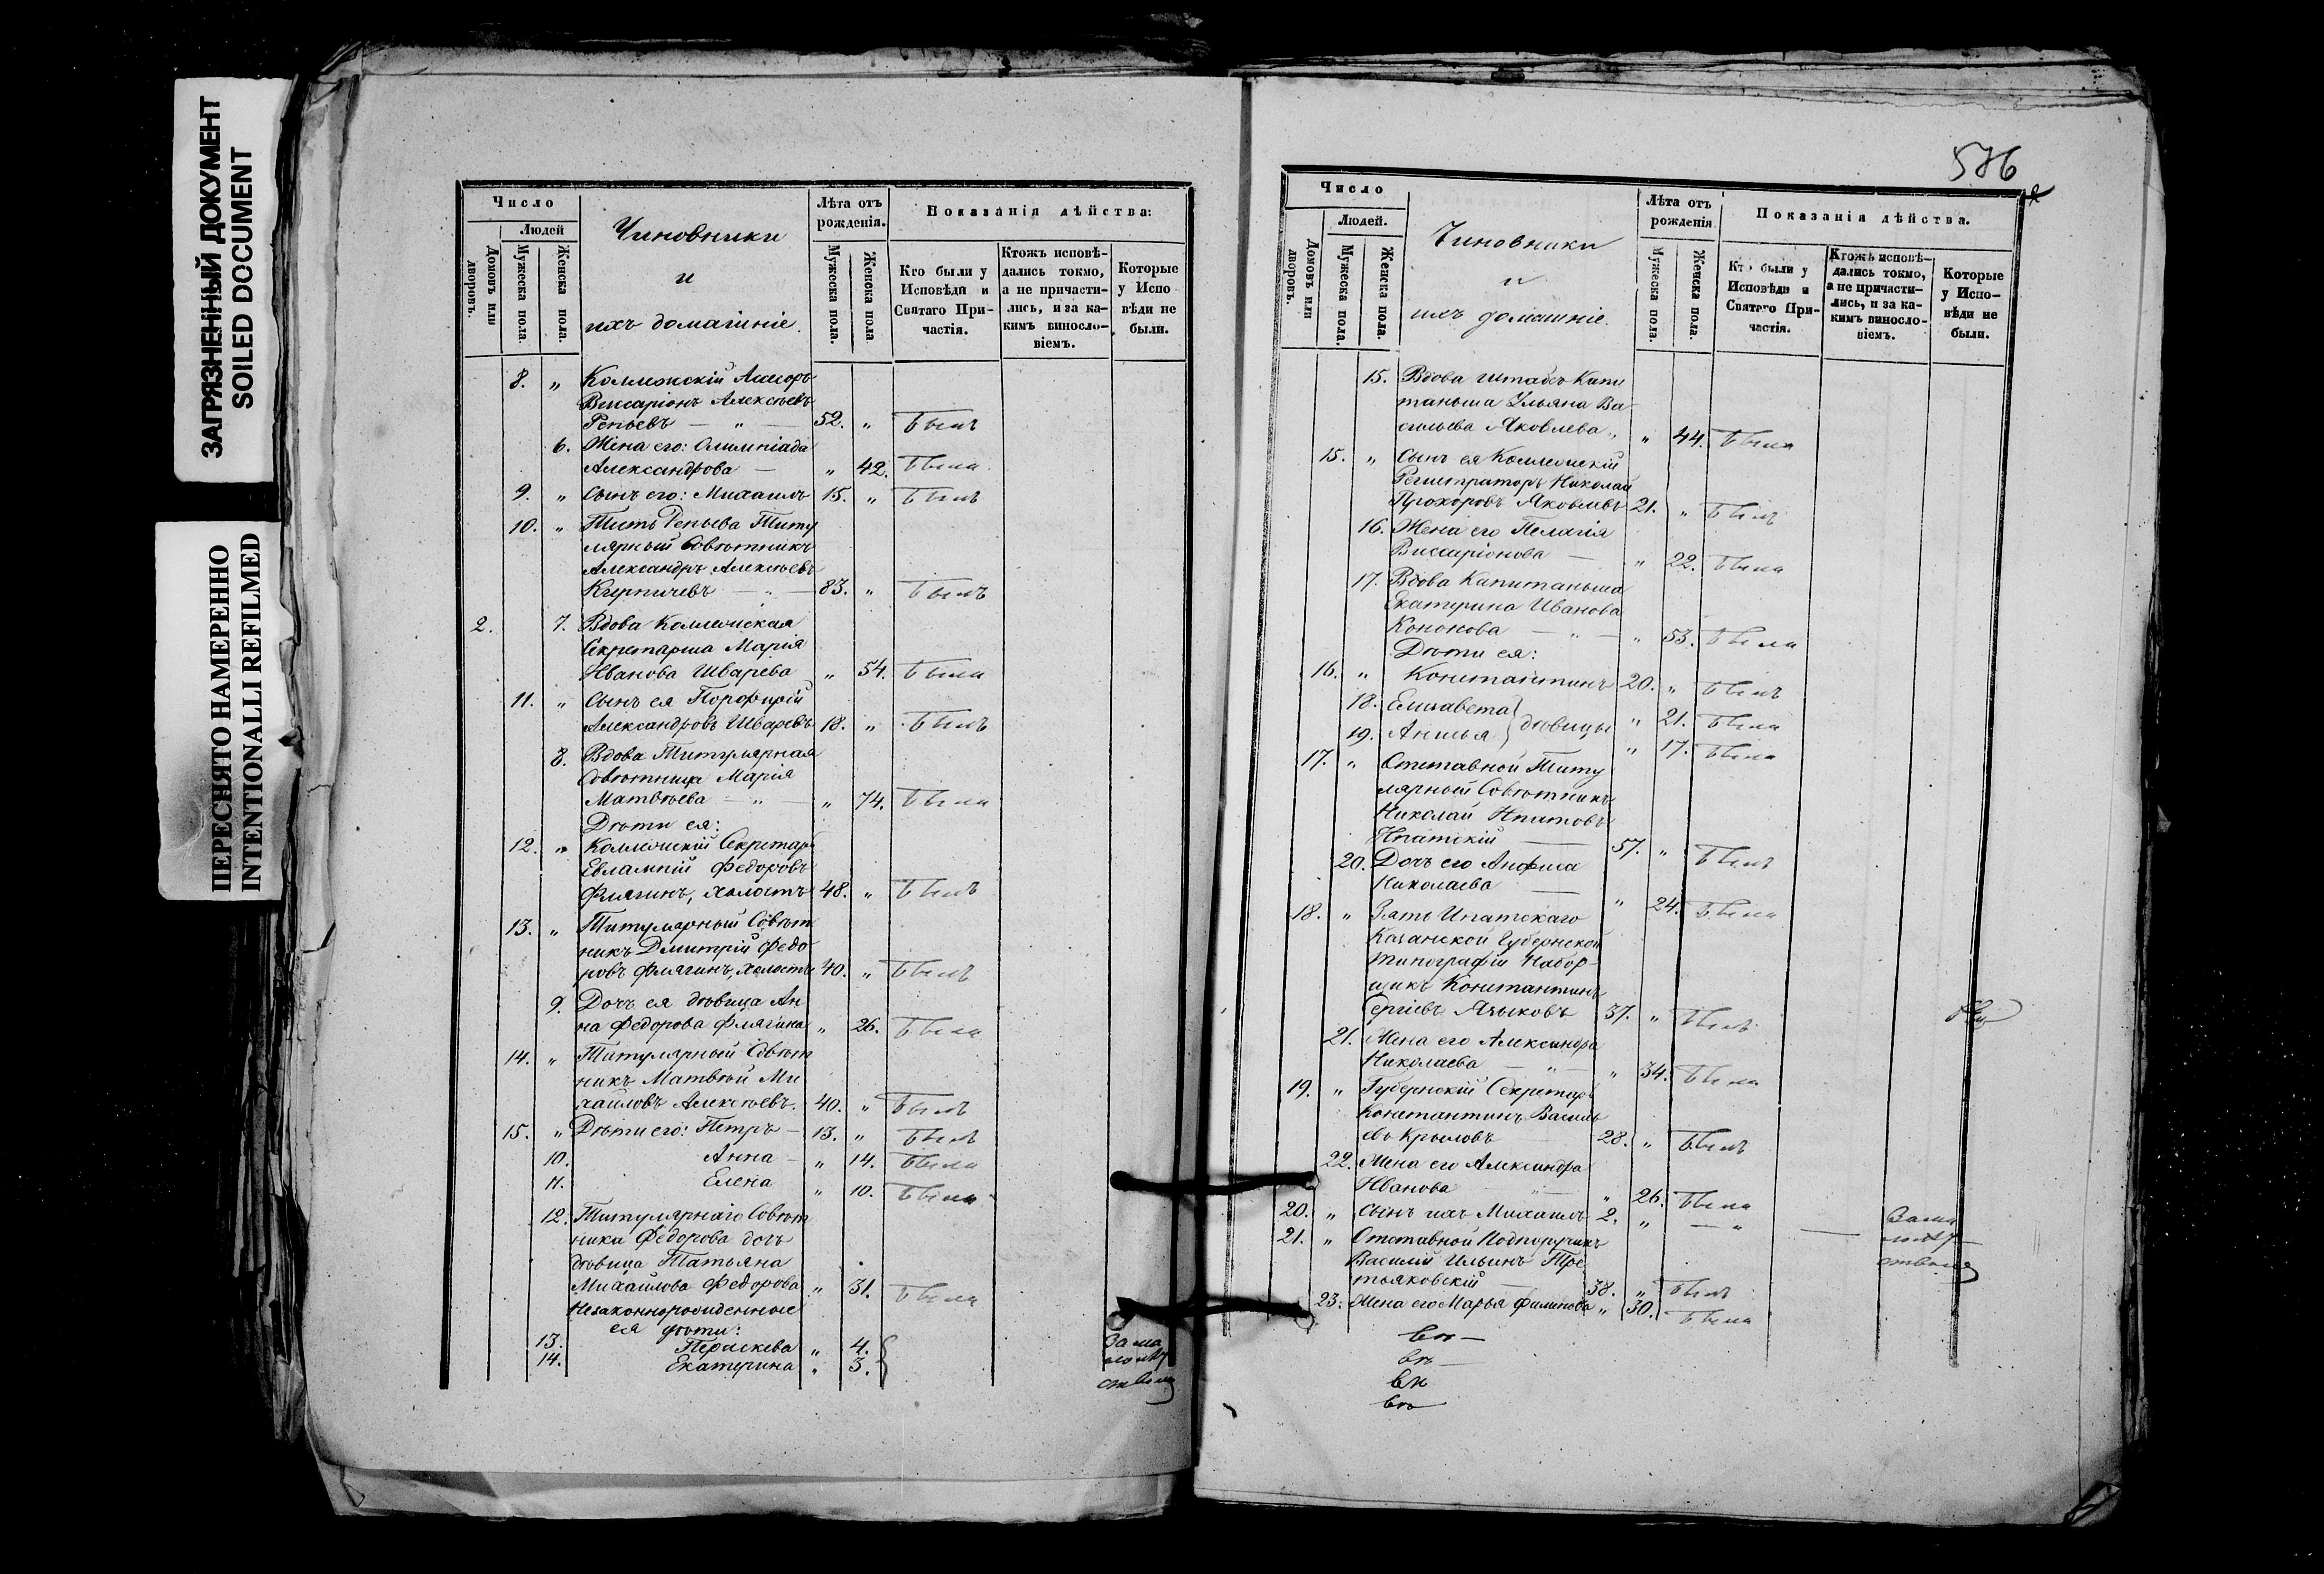 ЗАГРЯЗНЕННЫЙ ДОКУМЕНТ
SOILED DOCUMENT
ПЕРЕСНЯТО НАМЕРЕННО
INTENTIONALLI REFILMED
Число
Людей
Домовъ или дворовъ.
Мужеска пола.
Женска пола.
Чиновники
и
ихъ домашніе.
Лѣта отъ
рожденія.
Мужеска пола.
Женска пола
Показанія дѣйства:
Кто были у
Исповѣди и
Святаго При-
частія.
Ктожъ исповѣ-
дались токмо,
а не причасти-
лись, и за ка-
кимъ виносло-
віемъ.
Которые
у Испо
вѣди не
были.
8. „ Коллежскій Ассесоръ
Виссаріонъ Алексѣевъ
Репьевъ — „ — 52. „ Былъ
6. Жена его: Олимпіада
Александрова — „ 42. Была
9. „ Сынъ его: Михаилъ 15. „ Былъ
10. „ Тесть Репьева Титу
лярный Совѣтникъ
Александръ Алексѣевъ
Кирпичевъ — „ — 83. „ Былъ
2. 7. Вдова Коллежская
Секретарша Марія
Иванова Шварева „ 54. Была
11. „ Сынъ ея Порфирій
Александровъ Шваревъ 18. „ Былъ
8. Вдова Титулярная
Совѣтница Марія
Матвѣева — „ — „ 74. Была
Дѣти ея:
12. „ Коллежскій Секретарь
Евлампій Федоровъ
Флягинъ, холостъ 48. „ Былъ
13. „ Титулярный Совѣт
никъ Дмитрій Федо
ровъ Флягинъ, холостъ 40. „ Былъ
9. Дочь ея дѣвица Ан
на Федорова Флягина „ 26. Была
14. „ Титулярный Совѣт
никъ Матвѣй Ми
хайловъ Алексѣевъ. 40. „ Былъ
15. „ Дѣти его: Петръ — 13. „ Былъ
10. Анна — „ 14. Была
11. Елена „ 10. Была
12. Титулярнаго Совѣт
ника Федорова дочь
дѣвица Татьяна
Михайлова Федорова „ 31. Была
Незаконнорожденные
ея дѣти:
13. Параскева „ 4.
14. Екатерина „ 3.
За ма
лолѣт
ствомъ
586
Число
Людей.
Домовъ или дворовъ.
Мужеска пола.
Женска пола.
Чиновники
и
ихъ домашніе.
Лѣта отъ
рожденія
Мужеска пола.
Женска пола.
Показанія дѣйства.
Кто были у
Исповѣди и
Святаго При-
частія.
Ктожъ исповѣ-
дались токмо,
а не причасти-
лись, и за ка-
кимъ виносло-
віемъ.
Которые
у Испо-
вѣди не
были.
15. Вдова Штабсъ Капи
танша Ульяна Ва
сильева Яковлева „ „ 44. Была
15. „ Сынъ ея Коллежскій
Регистраторъ Николай
Прохоровъ Яковлевъ 21. „ Былъ
16. Жена его Пелагія
Виссаріонова — „ 22. Была
17. Вдова Капитанша
Екатерина Иванова
Кононова — „ — „ 53. Была
Дѣти ея:
16. „ Константинъ 20. „ Былъ
18. Елисавета } дѣвицы „ 21. Была
19. Анисья „ 17. Была
17. „ Отставной Титу
лярный Совѣтникъ
Николай Ипатовъ
Ипатскій — 57. „ Былъ
20. Дочь его Анфиса
Николаева — „ 24. Была
18. „ Зять Ипатскаго
Казанской Губернской
Типографіи Набор-
щикъ Константинъ
Сергіевъ Языковъ 37. „ Былъ
21. Жена его Александра
Николаева — „ — „ 34. Была
19. „ Губернскій Секретарь
Константинъ Василь
евъ Крыловъ 28. „ Былъ
22. Жена его Александра
Иванова „ 26. Была
20. „ Сынъ ихъ Михаилъ 2. „ — „ — За ма
лолѣт
ствомъ
21. „ Отставной Подпоручикъ
Василій Ильинъ Тре
тьяковскій — 38. „ Былъ
23. Жена его Марья Филипова „ 30. Была